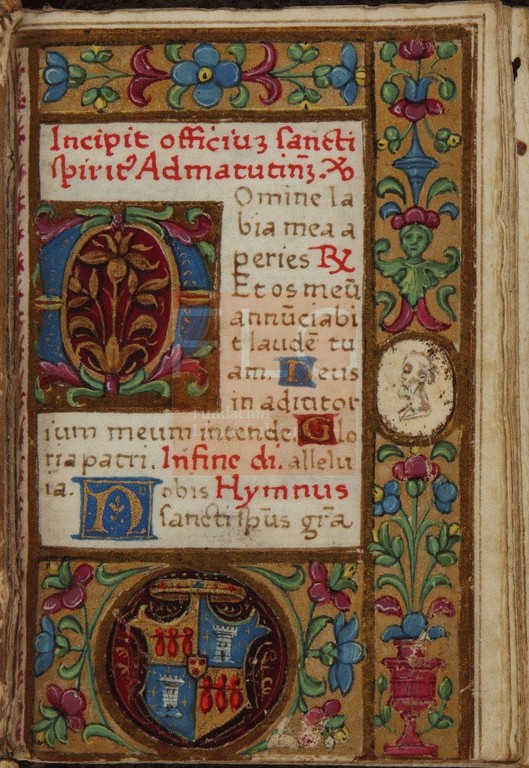 Incipit officiuꝫ sancti
spirit⁹ Ad matutinꝫ. ℣
Domine la
bia mea a
peries ℞
Et os meū
annūciabi
t laudē tu
am. Deus
in adititor
ium meum intende. Glo
ria patri. In fine di. allelu
ia. Nobis Hymnus
sancti sp̄us gr̄a
fundación